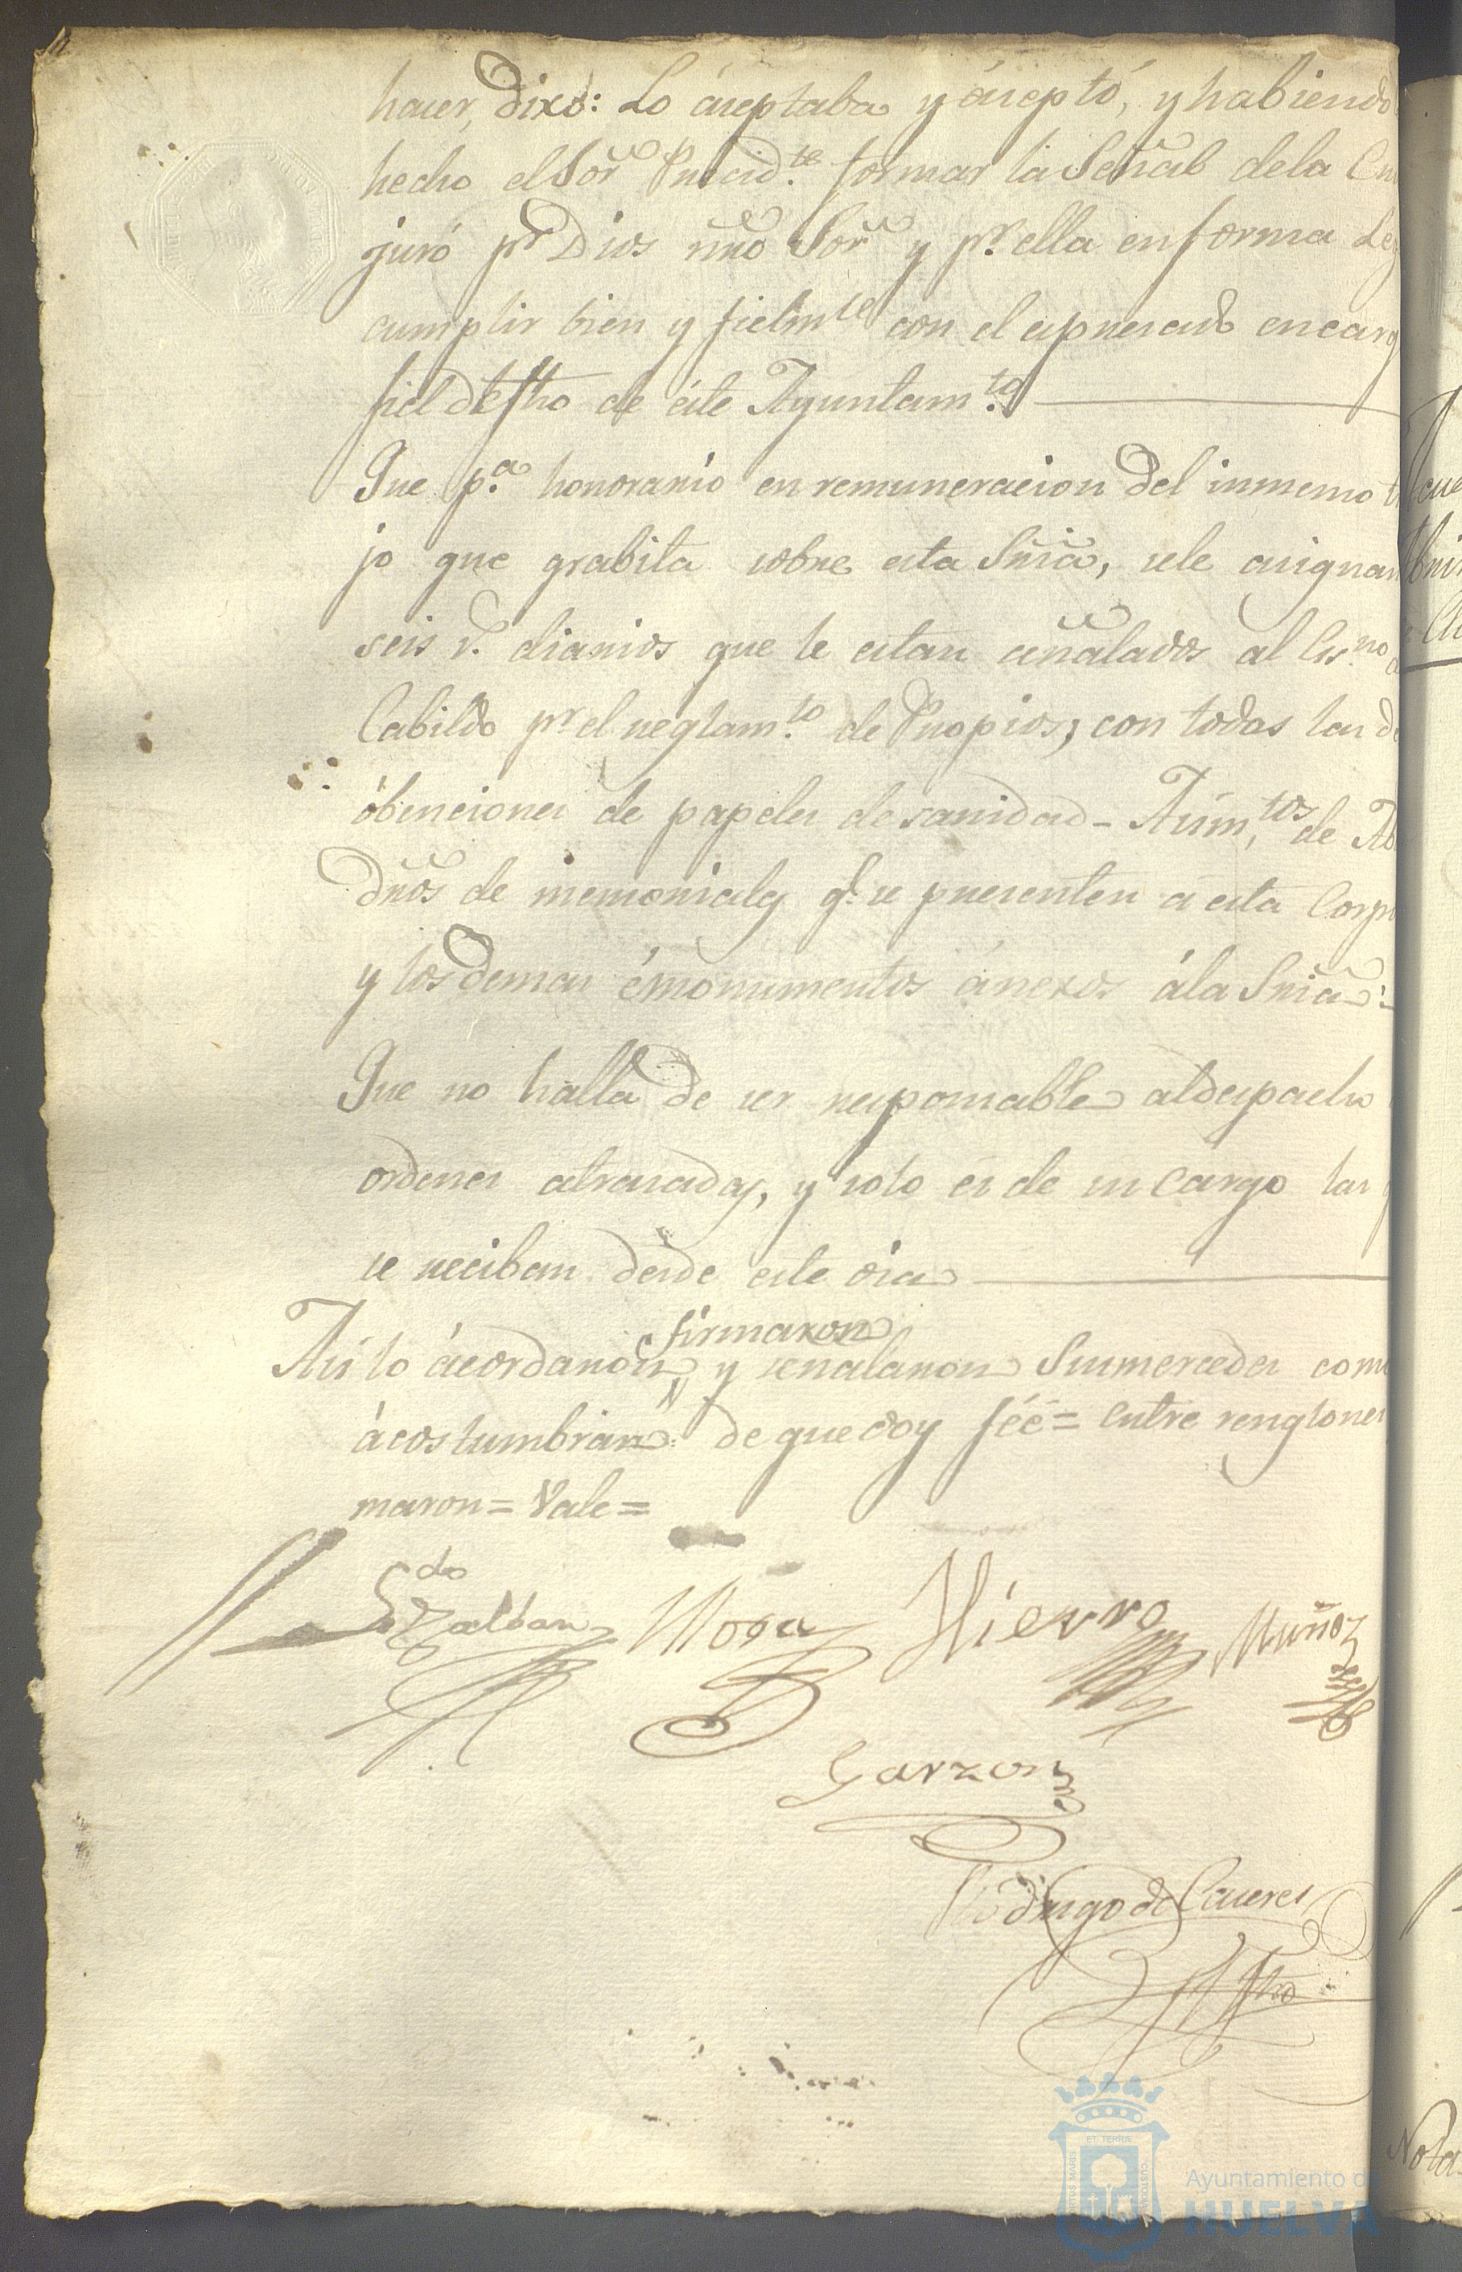 hacer, dixo: Lo áceptaba y áceptó, y habiendo
hecho el Sor Presid.te formar la Señal de la Cru
juró pr Dios nño Sor y pr. ella en forma Leg
cumplir bien y fielmte con el expresado encarg
fiel defho de éste Ayuntam.to
Que p.a honorario en remuneracion del inmemo
jo que grabita sobre esta Sria, sele asignan
seis r.s diarios que le estan señalados al Es.no
Cabildo pr el reglam.to de Propios; con todas las d
óbenciones de papeles de sanidad - Asim.tos de
Dros de memoriales q.e se presenten á esta Corp
y los demas émonumentos ánexos ála Sria
Que no halla de ser responsable al despacho
ordenes atrasadas, y solo es de su cargo las q
se reciban desde este dia
firmaron
Asi lo ácordaron, y señalaron Sus mercedes com
ácostumbran: de que doy féé = entre renglones
maron = Vale =
Ldo
Zalvan Mora Hierro Muñoz
Garzon
Rodrigo de Caceres
Ayuntamiento de
HUELVA
Nota